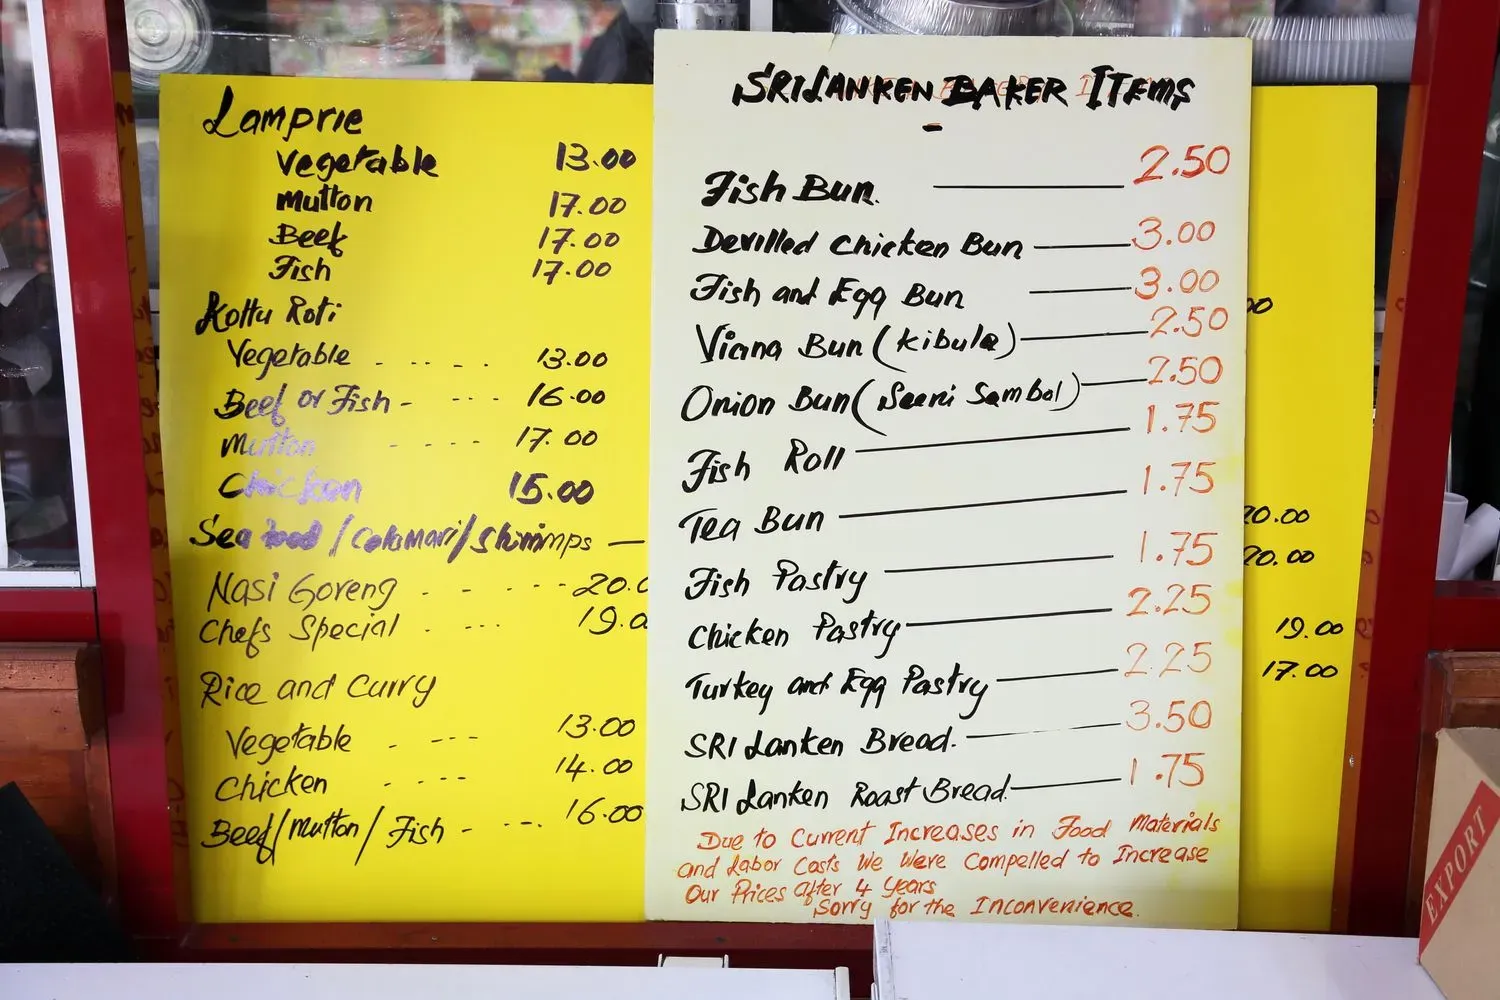 Lamprie
Vegetable 13.00
Mutton 17.00
Beef 17.00
Fish 17.00
Kottu Roti
Vegetable - - - - - 13.00
Beef or Fish - - - - 16.00
Mutton - - - - 17.00
Chicken 15.00
Sea food / Calamari / Shrimps —
Nasi Goreng - - - - - 20.0
Chefs Special - - - - 19.0
Rice and Curry
Vegetable - - - - 13.00
Chicken - - - - 14.00
Beef/Mutton/Fish - - - - 16.00
SRI LANKEN BAKER ITEMS
-
Fish Bun. — 2.50
Devilled Chicken Bun — 3.00
Fish and Egg Bun — 3.00
Viana Bun (Kibula) — 2.50
Onion Bun (Seeni Sambol) — 2.50
Fish Roll — 1.75
Tea Bun — 1.75
Fish Pastry — 1.75
Chicken Pastry — 2.25
Turkey and Egg Pastry — 2.25
SRI Lanken Bread. — 3.50
SRI Lanken Roast Bread — 1.75
Due to Current Increases in Food Materials
and Labor Costs We Were Compelled to Increase
Our Prices after 4 Years
Sorry for the Inconvenience.
20.00
20.00
19.00
17.00
EXPORT